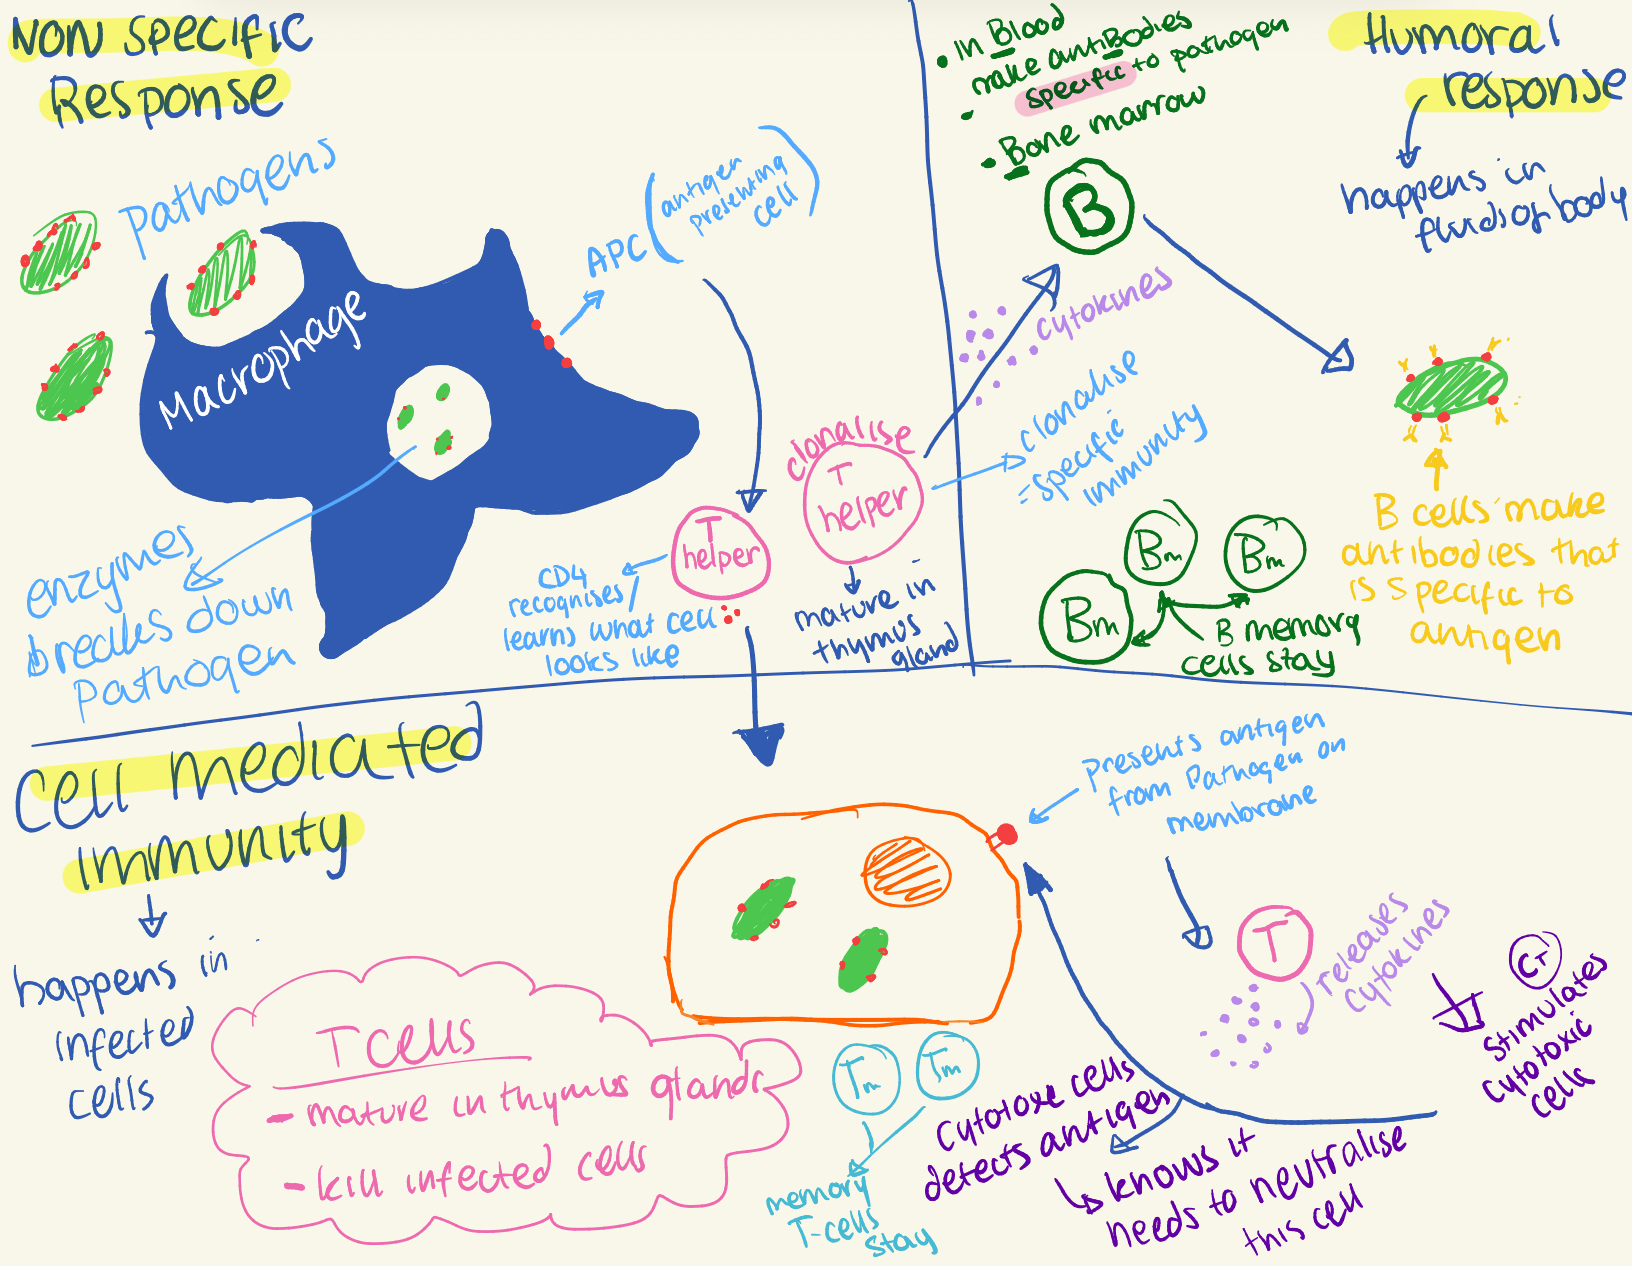 NON SPECIFIC
RESPONSE
pathogens
Macrophage
APC (antigen
presenting
cell)
enzymes
breakes down
pathogen
T
helper
CD4
recognises/
learns what cell
looks like
clonalise
T
helper
mature in
thymus
gland
• in Blood
make antiBodies
• specific to pathogen
• Bone marrow
B
cytokines
clonalise
= specific
immunity
Humoral
response
happens in
fluids of body
Bm
Bm
Bm
B memory
cells stay
B cells make
antibodies that
is specific to
antigen
Cell mediated
immunity
happens in
infected
cells
T cells
- mature in thymus gland
- kill infected cells
presents antigen
from Pathogen on
membrane
T
releases
cytokines
CT
stimulates
cytotoxic
cells
Tm
Tm
memory
T-cells
stay
cytotoxc cells
detects antigen
↳ knows it
needs to neutralise
this cell